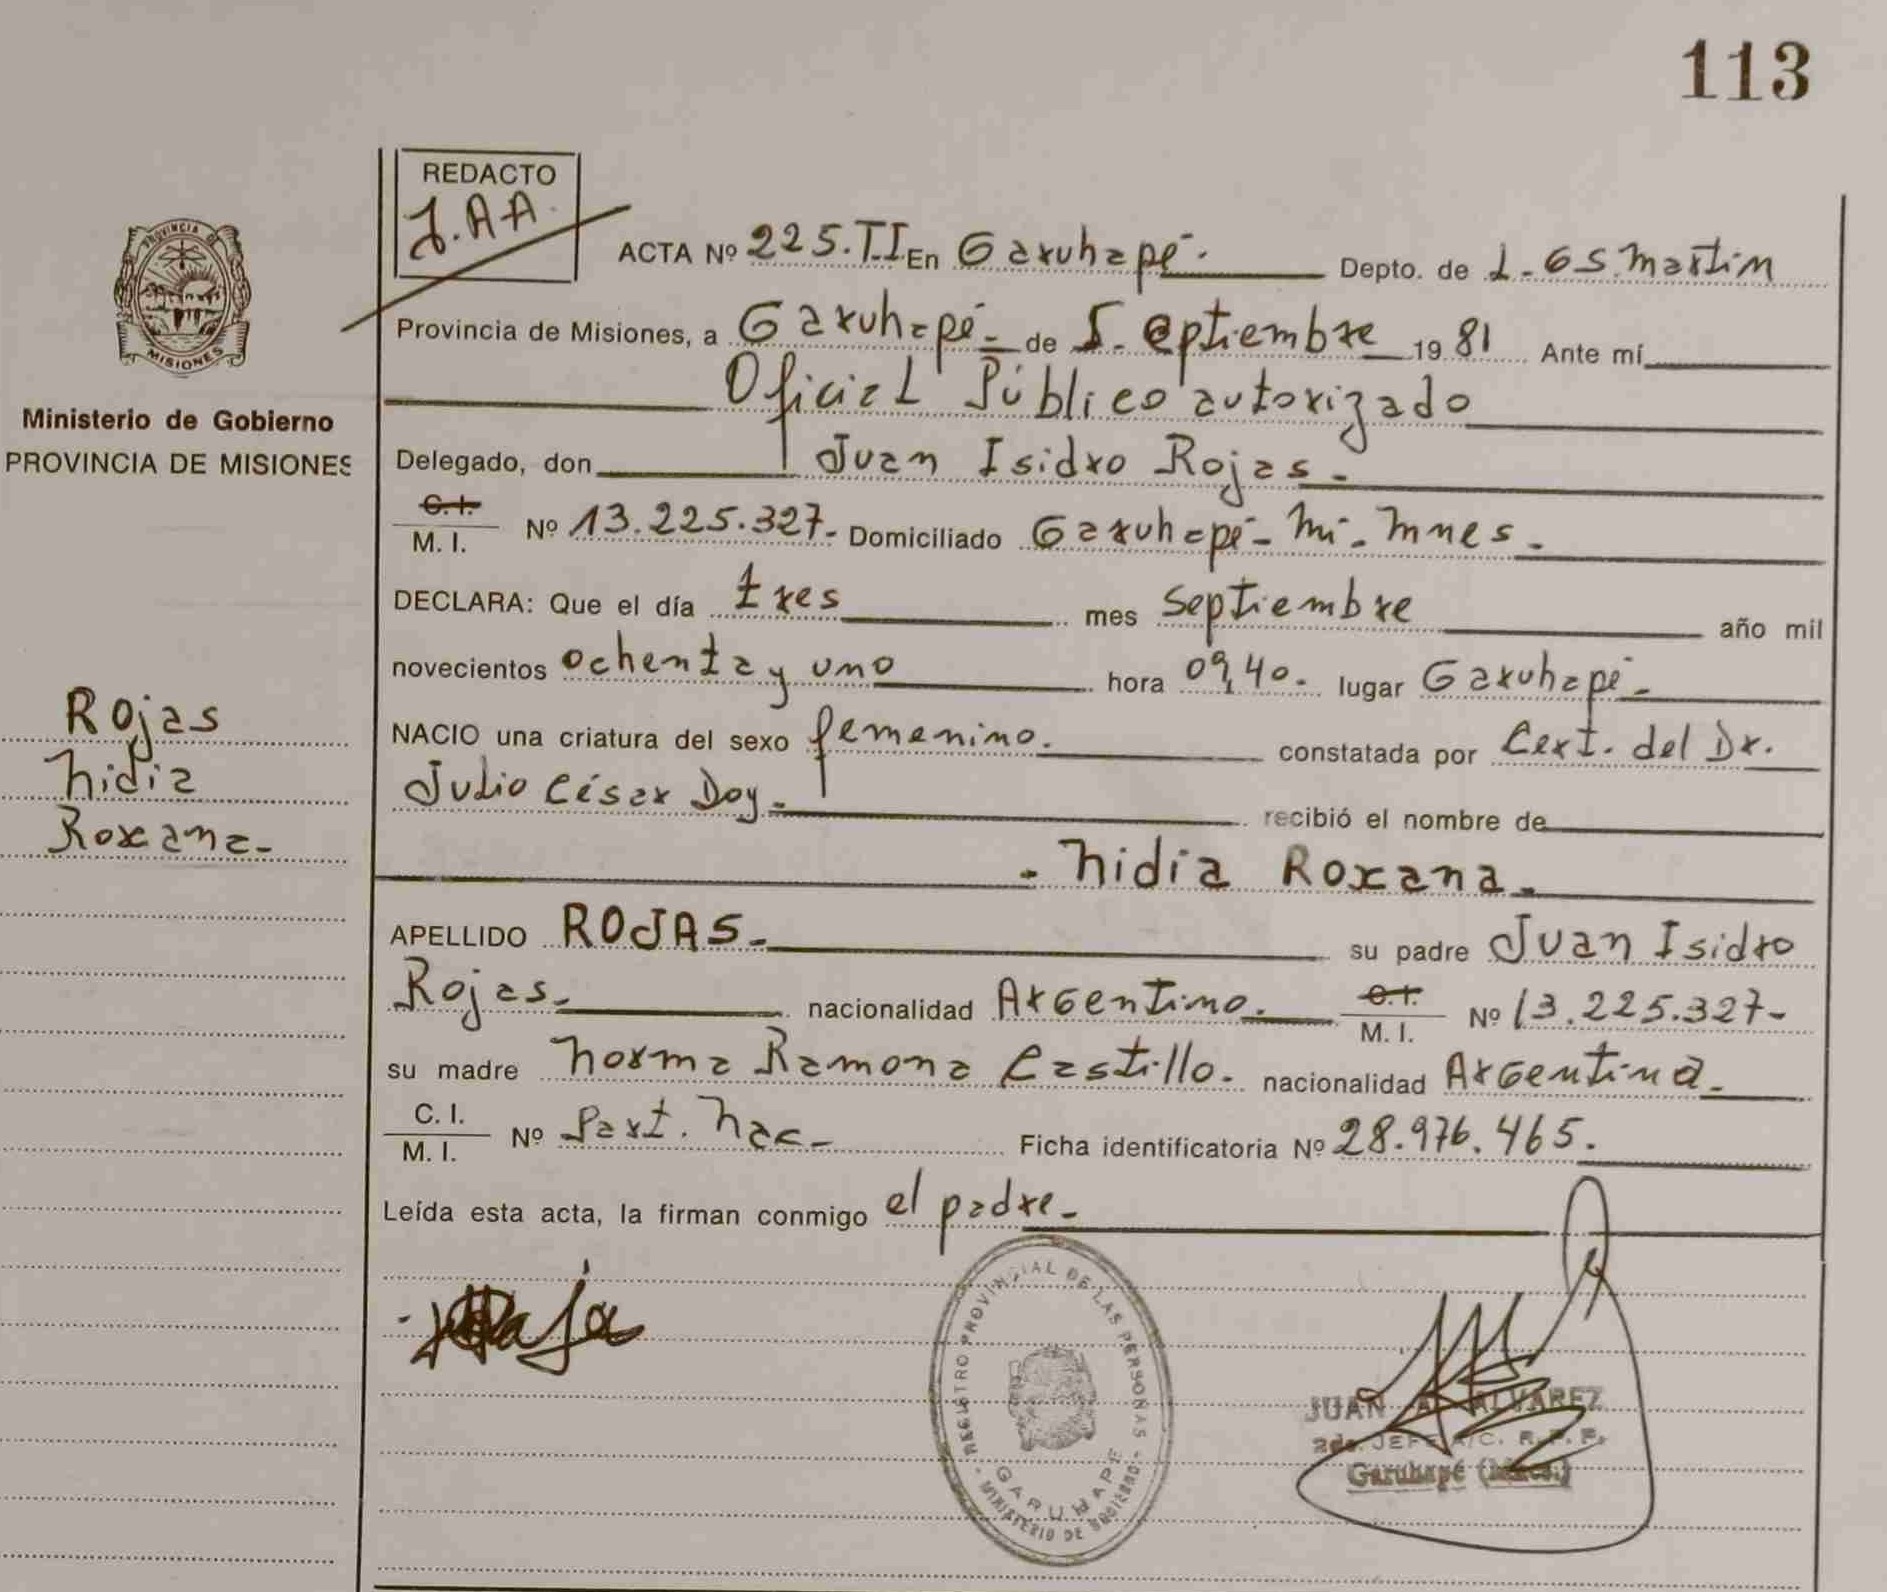 113
REDACTO
J.AA.
ACTA Nº 225.T.I. En Garuhapé. Depto. de L-GS.Martin
Provincia de Misiones, a Garuhapé- de 5. eptiembre 19 81 Ante mí
Oficial Público autorizado
PROVINCIA DE
MISIONES
Ministerio de Gobierno
PROVINCIA DE MISIONES
Delegado, don Juan Isidro Rojas-
C.I. / M. I. Nº 13.225.327- Domiciliado Garuhapé- Mi- Mnes.-
DECLARA: Que el día tres mes septiembre año mil
novecientos ochenta y uno hora 09,40. lugar Garuhapé-
Rojas
Nidia
Roxana-
NACIO una criatura del sexo femenino. constatada por Cert. del Dr.
Julio César Doy- recibió el nombre de
- Nidia Roxana-
APELLIDO ROJAS- su padre Juan Isidro
Rojas- nacionalidad Argentino. C.I. / M. I. Nº 13.225.327-
su madre Norma Ramona Castillo. nacionalidad Argentina-
C. I. / M. I. Nº Part. Nac- Ficha identificatoria Nº 28.976.465.
Leída esta acta, la firman conmigo el padre-
REGISTRO PROVINCIAL DE LAS PERSONAS
GARUHAPE
MINISTERIO DE GOBIERNO
JUAN A. ALVAREZ
2do. JEFE A/C. R.P.P.
Garuhapé (Mnes.)